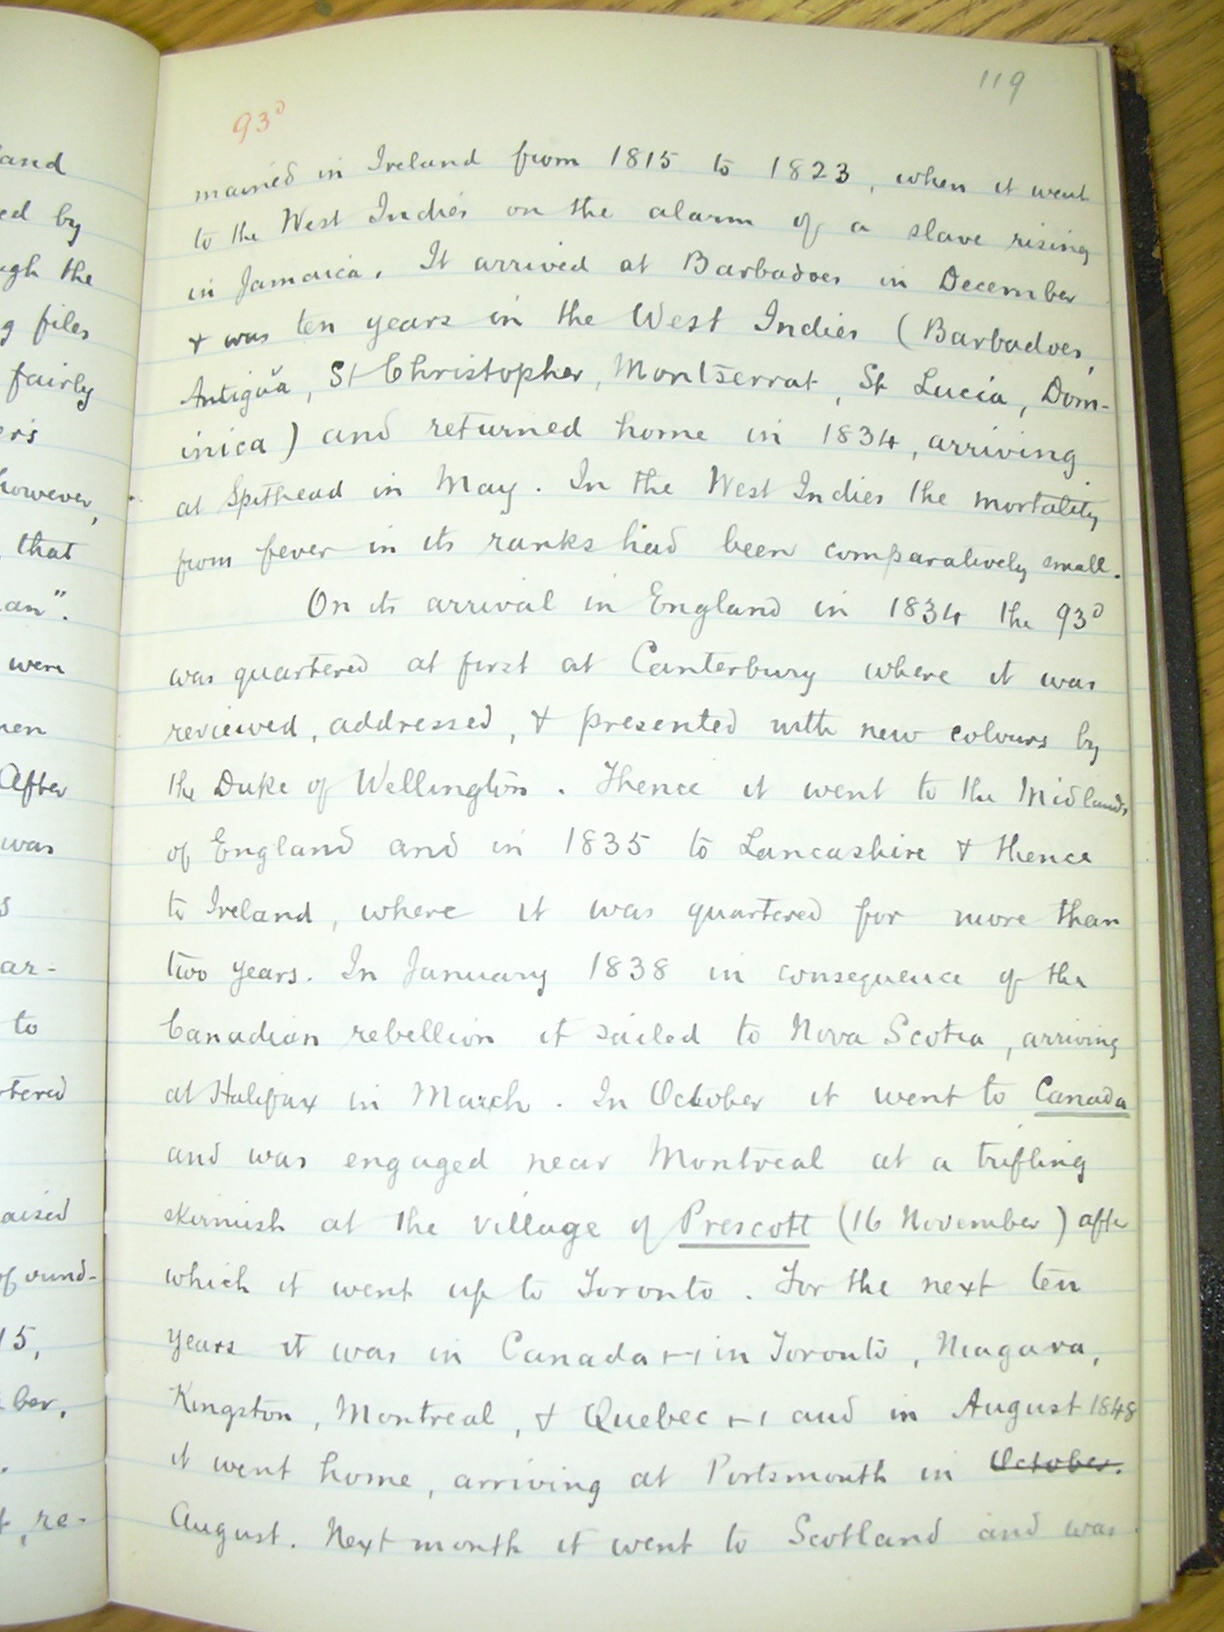 and
ed by
ugh the
g files
fairly
ers
however,
that
an".
were
hen
After
was
s
ar-
to
rtered
aised
of ound-
15,
ber,
t, re-
119
93d
mained in Ireland from 1815 to 1823, when it went
to the West Indies on the alarm of a slave rising
in Jamaica. It arrived at Barbadoes in December
& was ten years in the West Indies (Barbadoes,
Antigua, St Christopher, Montserrat, St Lucia, Dom-
inica) and returned home in 1834, arriving
at Spithead in May. In the West Indies the mortality
from fever in its ranks had been comparatively small.
On its arrival in England in 1834 the 93d
was quartered at first at Canterbury where it was
reviewed, addressed, & presented with new colours by
the Duke of Wellington. Thence it went to the Midlands
of England and in 1835 to Lancashire & thence
to Ireland, where it was quartered for more than
two years. In January 1838 in consequence of the
Canadian rebellion it sailed to Nova Scotia, arriving
at Halifax in March. In October it went to Canada
and was engaged near Montreal at a trifling
skirmish at the village of Prescott (16 November) after
which it went up to Toronto. For the next ten
years it was in Canada – in Toronto, Niagara,
Kingston, Montreal, & Quebec – and in August 1848
it went home, arriving at Portsmouth in October.
August. Next month it went to Scotland and was